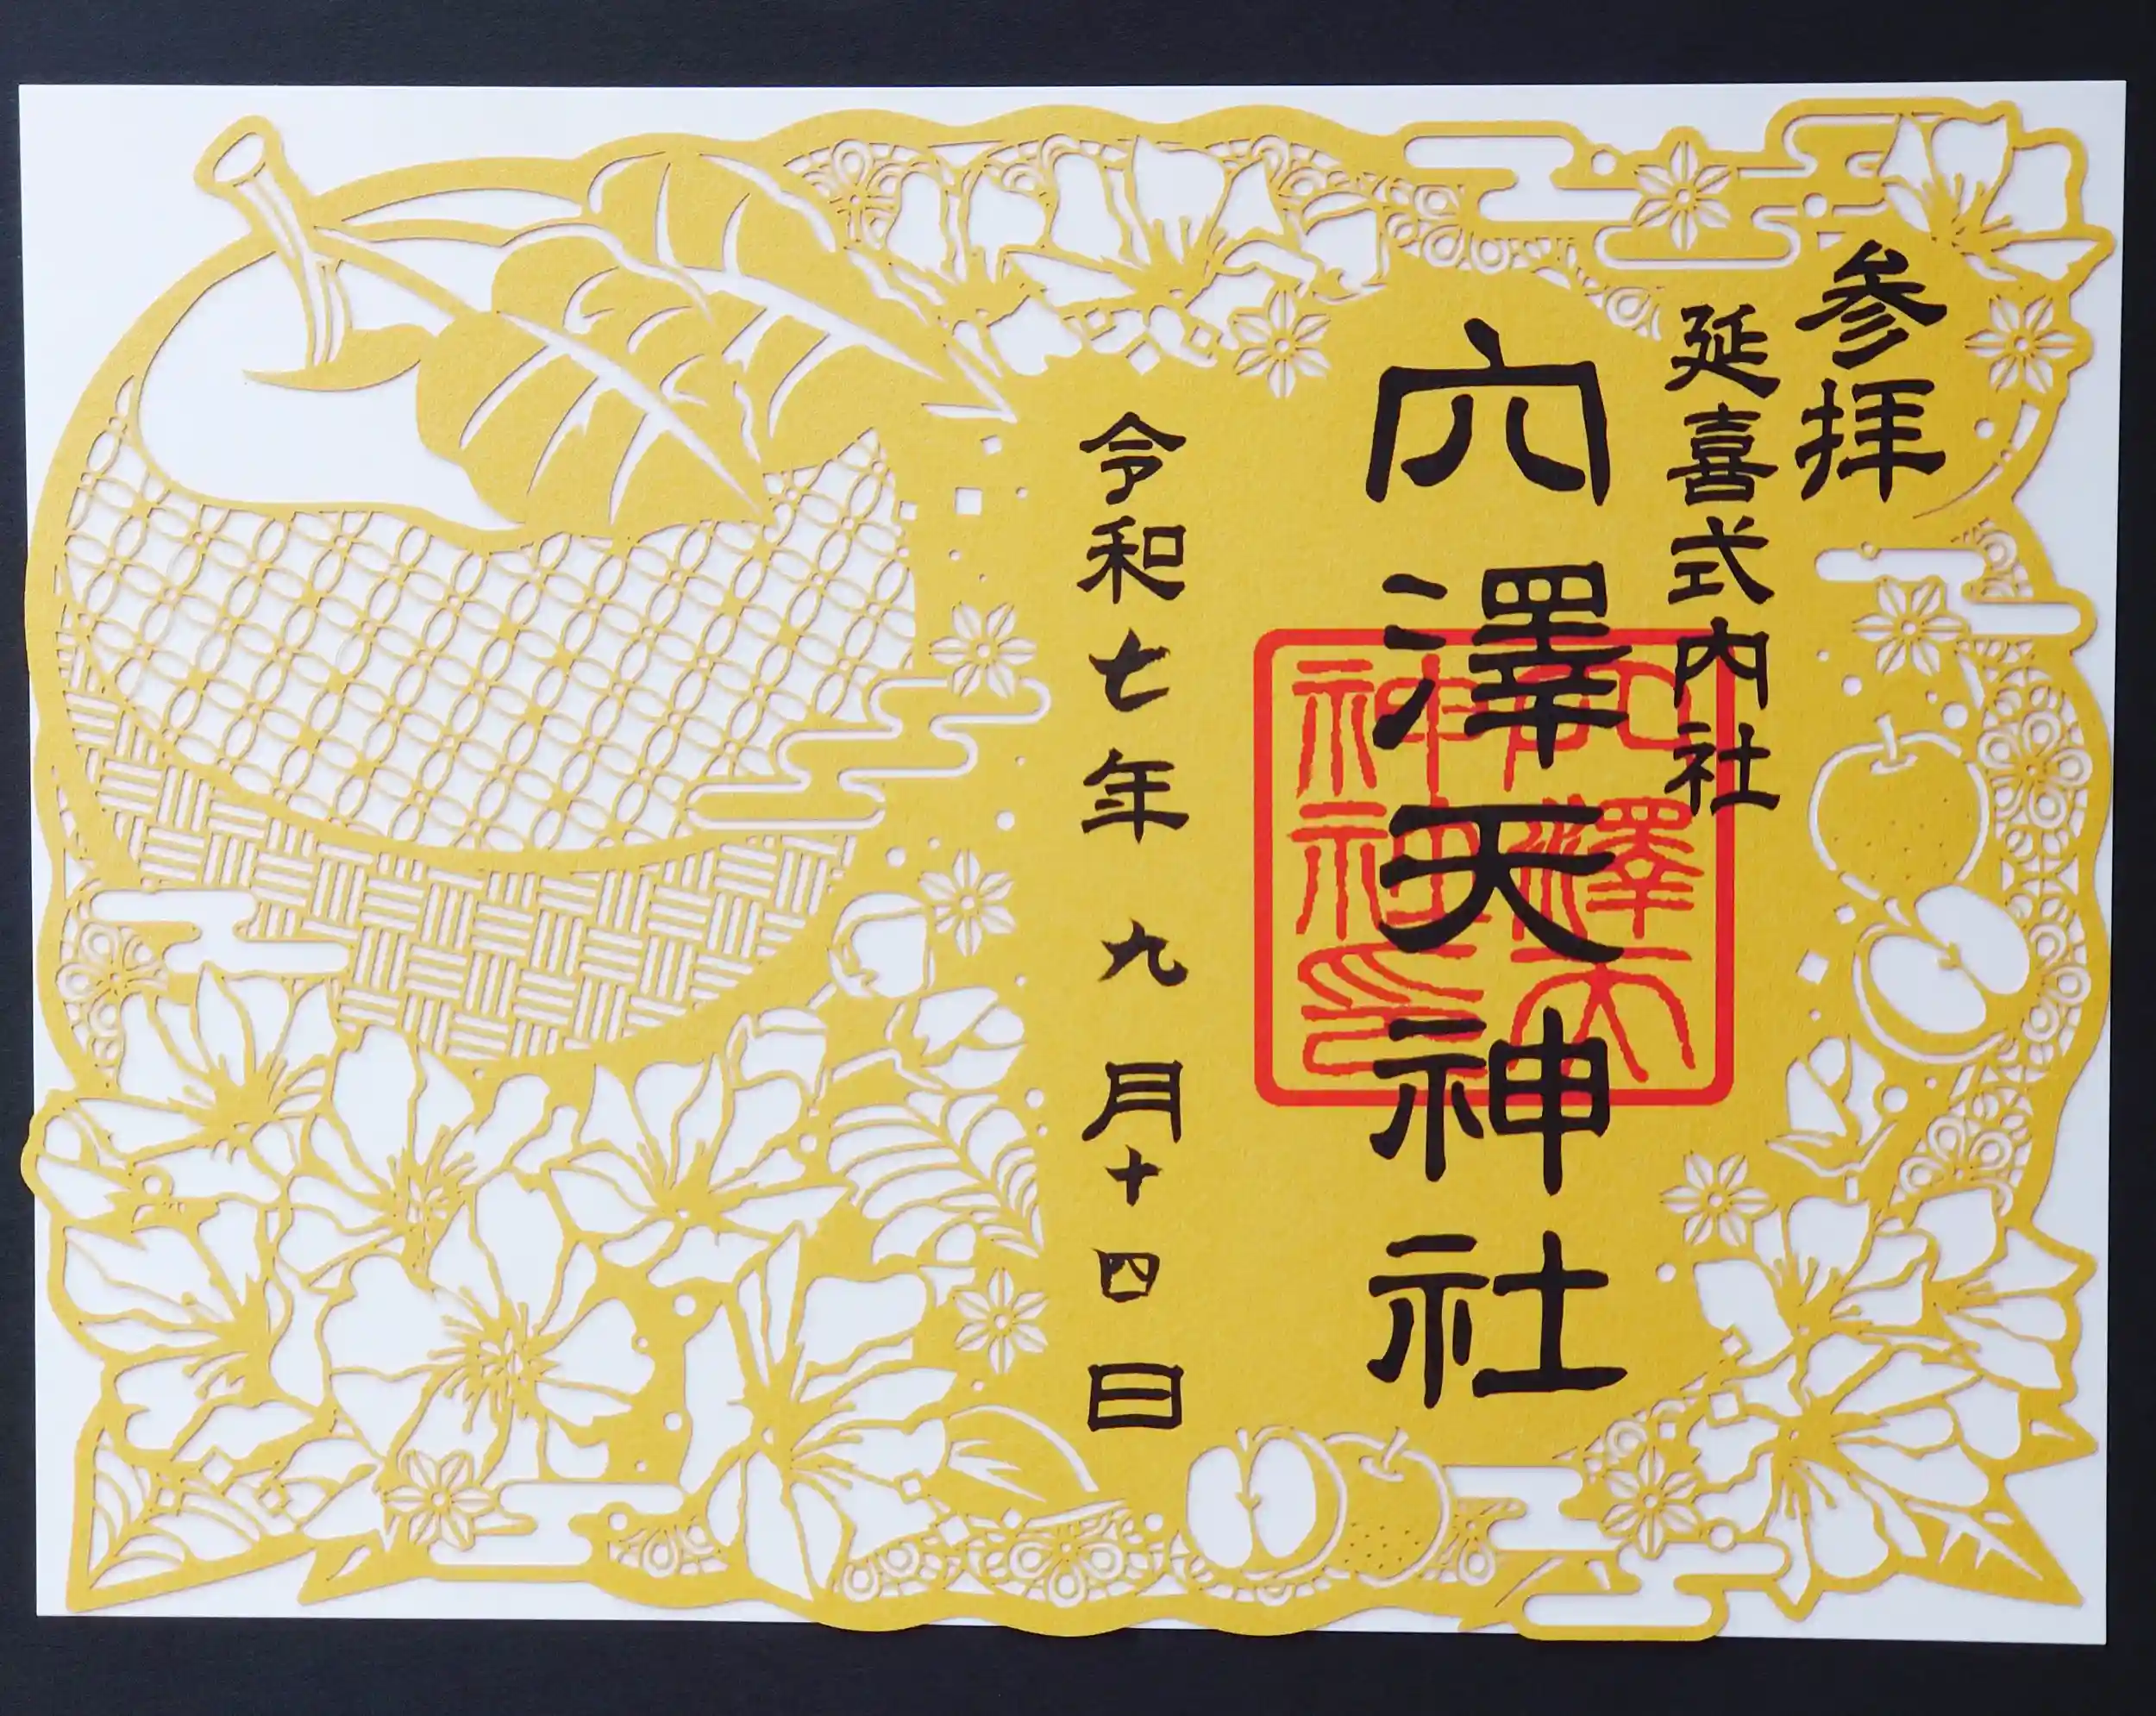 参拝
延喜式内社
穴澤天神社
穴澤天
神社
神印
令和七年九月十四日